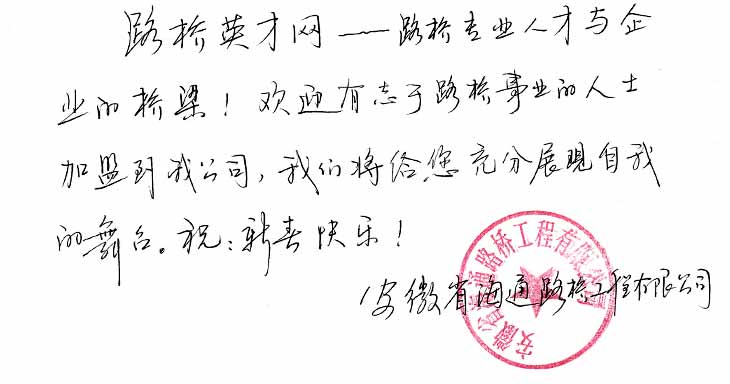 路桥英才网——路桥专业人才与企
业的桥梁！欢迎有志于路桥事业的人士
加盟到我公司，我们将给您充分展现自我
的舞台。祝：新春快乐！
安徽省海通路桥工程有限公司
安徽省海通路桥工程有限公司